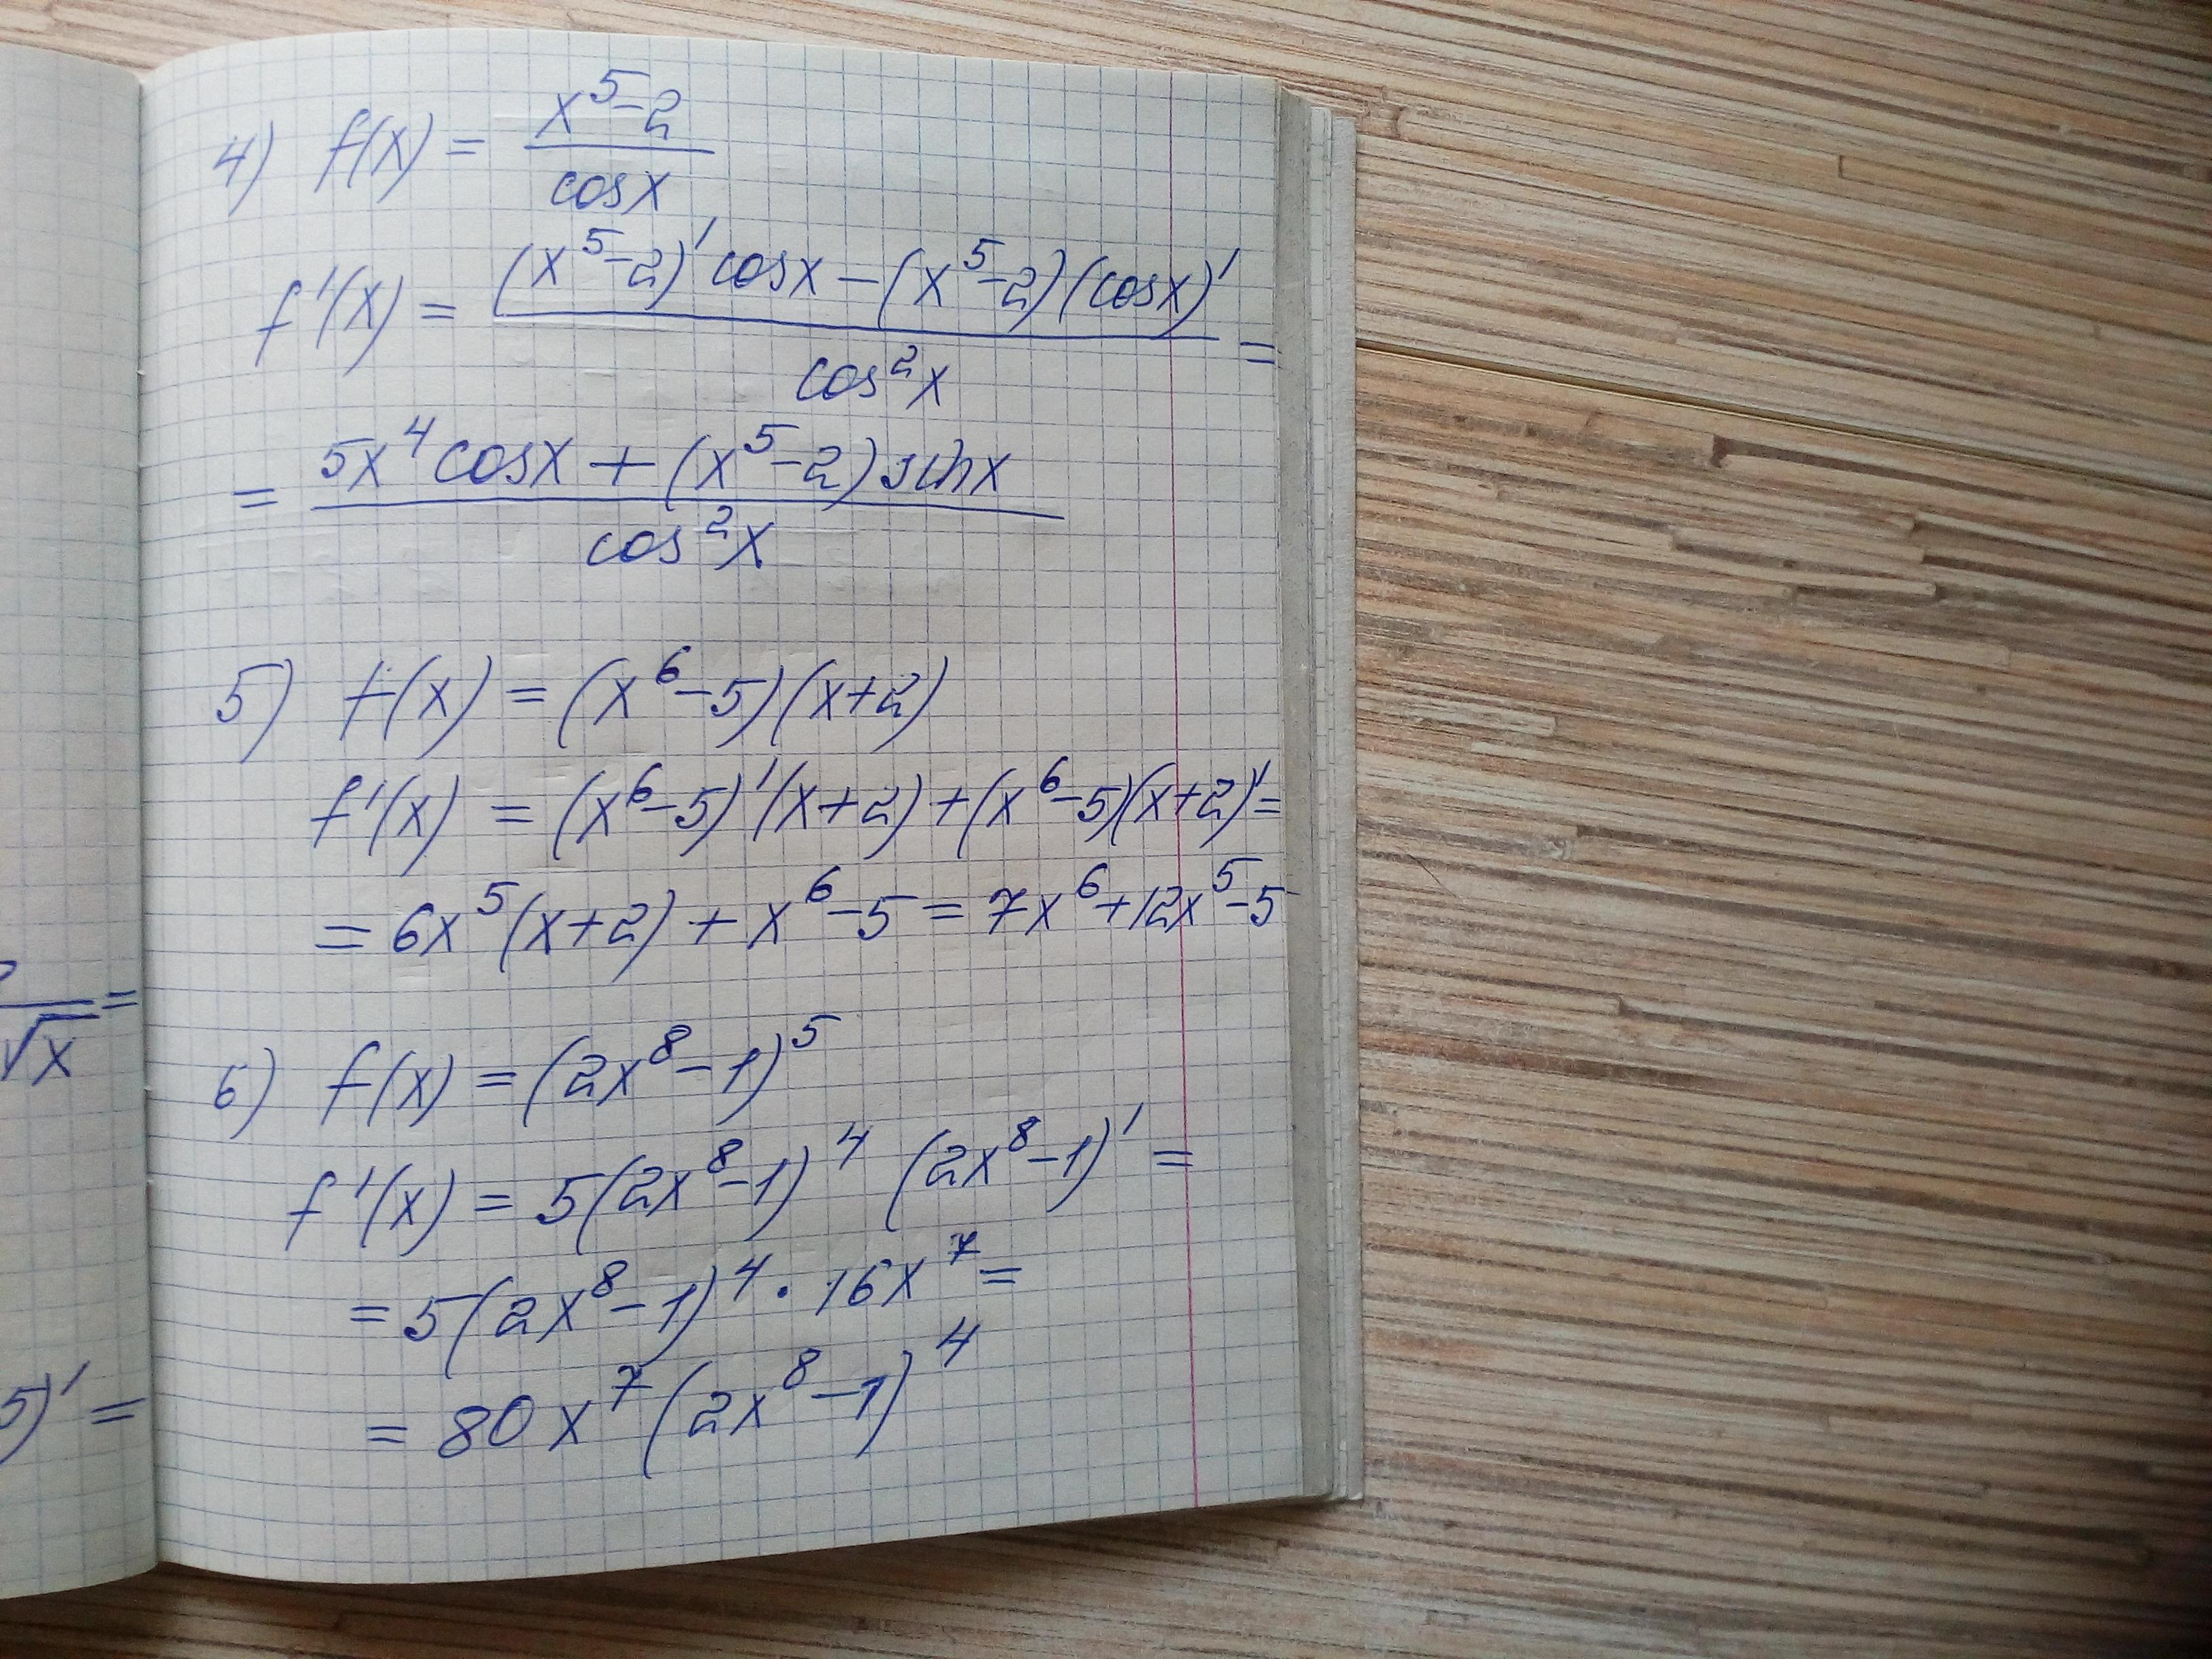 4) f(x) = (x⁵-2)/cosx
f'(x) = ((x⁵-2)'cosx-(x⁵-2)(cosx)')/cos²x =
= (5x⁴cosx+(x⁵-2)sinx)/cos²x
5) f(x) = (x⁶-5)(x+2)
f'(x) = (x⁶-5)'(x+2)+(x⁶-5)(x+2)'=
= 6x⁵(x+2)+x⁶-5=7x⁶+12x⁵-5
6) f(x) = (2x⁸-1)⁵
f'(x) = 5(2x⁸-1)⁴ (2x⁸-1)' =
=5(2x⁸-1)⁴·16x⁷=
= 80x⁷(2x⁸-1)⁴
√x =
5)' =